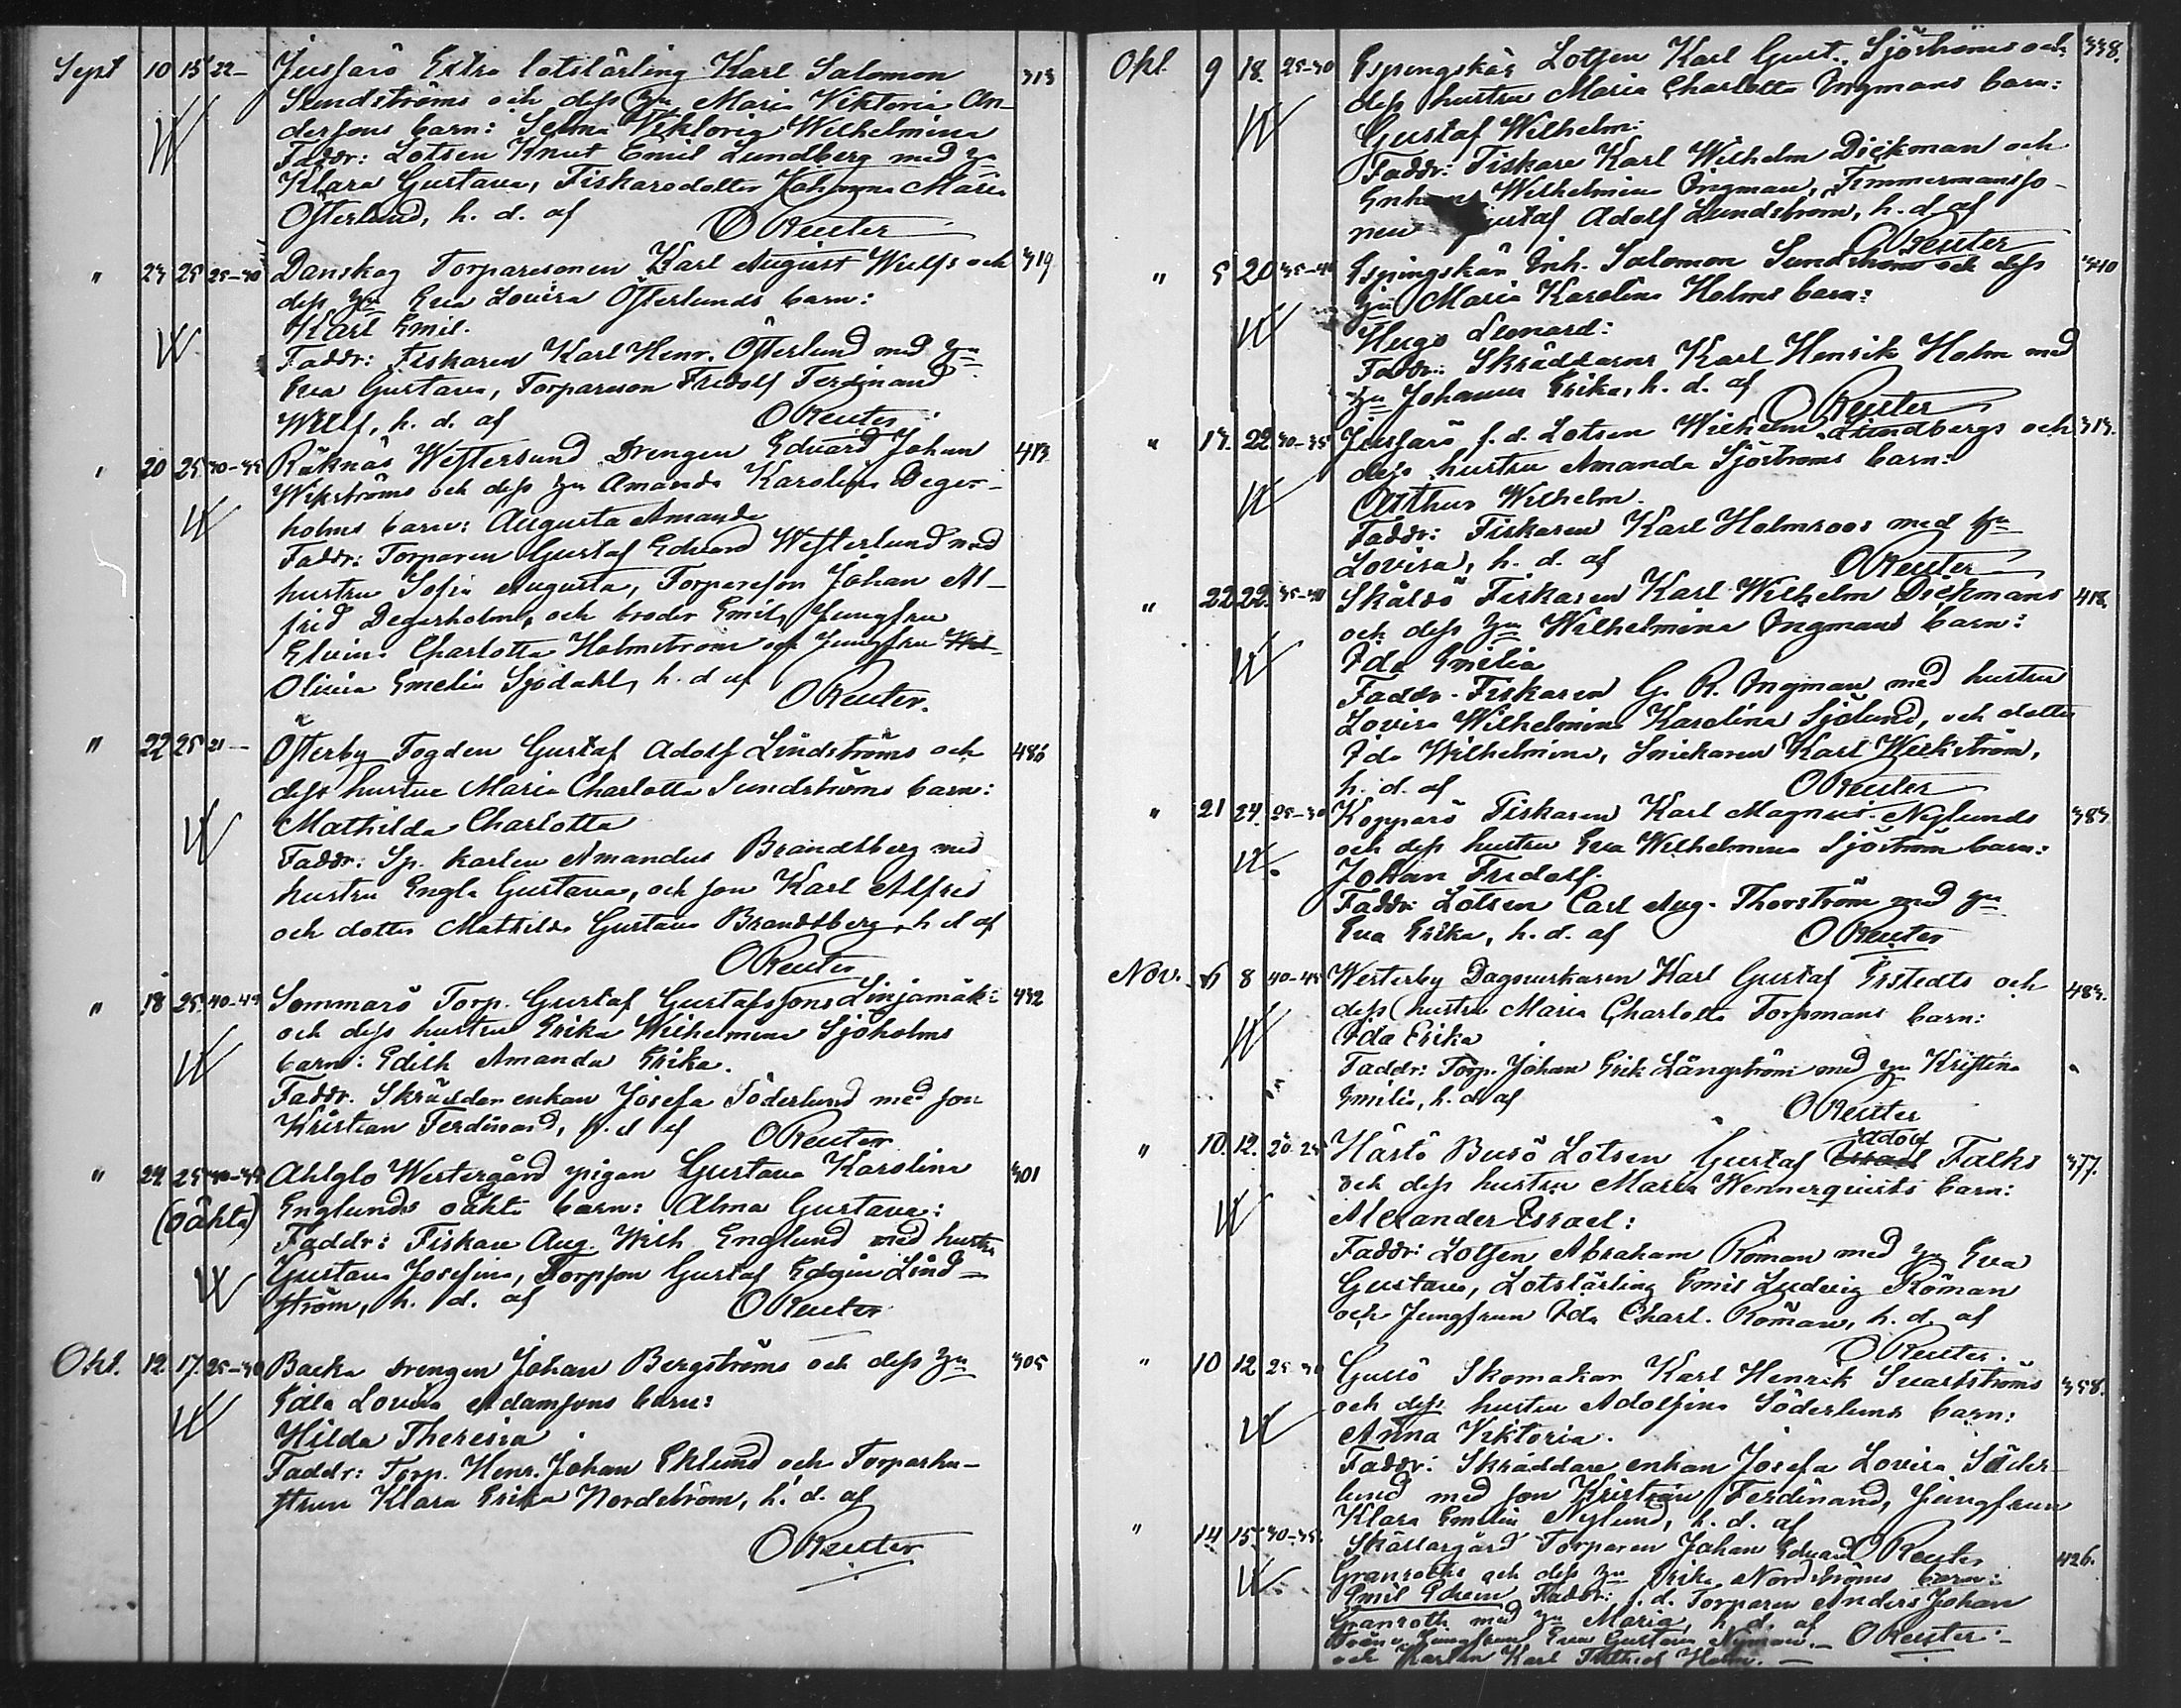 Sept 10 15 22- Jussarö Extra lotslärling Karl Salomon 313
Sundströms och dess hu Maria Viktoria An-
dersons barn: Selma Viktoria Wilhelmina
Faddr: Lotsen Knut Emil Lundberg med hu
Klara Gustava, Fiskaredotter Johanna Maria
Österlund, h. d. af O Reuter
" 23 25 25-30 Danskog Torparesonen Karl August Wulfs och 319
dess hu Eva Lovisa Österlunds barn:
Karl Emil.
Faddr: Fiskaren Karl Henr. Österlund med hu
Eva Gustava, Torpareson Fridolf Ferdinand
Wulf, h. d. af O Reuter
" 20 25 30-35 Räknäs Westersund Drengen Eduard Johan 413
Wikströms och dess hu Amanda Karolina Deger-
holms barn: Augusta Amanda
Faddr: Torparen Gustaf Edvard Westerlund med
hustru Sofia Augusta, Torpareson Johan Al-
frid Degerholm, och broder Emil, Jungfru
Elvina Charlotta Holmstrom och Jungfru
Olivia Emelia Sjödahl, h. d af O Reuter.
" 22 25 21- Österby Fogden Gustaf Adolf Lindströms och 486
dess hustru Maria Charlotta Sundströms barn:
Mathilda Charlotta
Faddr: Sp. karlen Amandus Brandtberg med
hustru Engla Gustava, och son Karl Alfred
och dotter Mathilda Gustava Brandtberg, h d af
O Reuter
" 18 25. 40-45 Sommarö Torp. Gustaf Gustafssons Linjamäk: 432
och dess hustru Erika Wilhelmina Sjöholms
barn: Edith Amanda Erika.
Faddr. Skräddar enkan Josefa Söderlund med son
Kristian Ferdinand, h. d af O Reuter
" 24 25 40-45 Ahlglo Westergård pigan Gustava Karolina 301
(oäkta) Englunds oäkta barn: Alma Gustava:
Faddr: Fiskare Aug. Wilh Englund med hustru
Gustava Josefina, Torpson Gustaf Edvin Lind-
ström, h. d. af O Reuter
Okt. 12. 17. 25-30 Backa drengen Johan Bergströms och dess hu 305
Edla Lovisa Adamsons barn:
Hilda Theresia
Faddr: Torp. Henr. Johan Eklund och Torparhu-
strun Klara Erika Nordström, h. d. af
O Reuter
Okt. 9 18. 25-30 Espingskär Lotsen Karl Gust. Sjöströms och 338.
dess hustru Maria Charlotta Ingmans barn:
Gustaf Wilhelm:
Faddr: Fiskare Karl Wilhelm Dickman och
Wilhelmina Ingman, Timmermansso-
nen Gustaf Adolf Lundström, h. d. af
O Reuter
" 5 20 35-40 Espingskär Inh. Salomon Sundströms och dess 340
hu Maria Karolina Holms barn:
Hugo Leonard:
Faddr: Skräddarne Karl Henrik Holm med
hu Johanna Erika, h. d. af O Reuter
" 13. 22 30-35 Jussarö f. d. Lotsen Wilhelm Lundbergs och 313.
dess hustru Amanda Sjöströms barn:
Arthur Wilhelm.
Faddr: Fiskaren Karl Holmroos med hu
Lovisa, h. d. af O Reuter
" 22 22. 35-40 Skåldö Fiskaren Karl Wilhelm Dickmans 418.
och dess hu Wilhelmina Ingmans barn:
Ida Emilia
Faddr. Fiskaren G. R. Ingman med hustru
Lovisa Wilhelmina Karolina Sjölund, och dotter
Ida Wilhelmina, Snickaren Karl Werkström,
h. d. af O Reuter
" 21 24. 25-30 Kopparö Fiskaren Karl Magnus Nylunds 383.
och dess hustru Eva Wilhelmina Sjöström barn:
Johan Fridolf.
Faddr: Lotsen Carl Aug. Thorström med hu
Eva Erika, h. d. af O Reuter
Nov. 6 8 40-45 Westerby Dagsverkaren Karl Gustaf Erstedts och 483.
dess hustru Maria Charlotta Torpmans barn:
Ida Erika
Faddr: Torp. Johan Erik Långström med hu Kristina
Emilia, h. d. af O Reuter
" 10. 12. 20-25 Hästö Busö Lotsen Gustaf Adolf Falks 377.
och dess hustru Maria Wennerqvists barn:
Alexander Israel:
Faddr: Lotsen Abraham Röman med hu Eva
Gustava, Lotslärling Emil Ludvig Röman
och Jungfrun Ida Charl. Röman, h. d. af
O Reuter.
" 10 12 25-30 Gullö Skomakar Karl Henrik Svartströms 358.
och dess hustru Adolfina Söderlunds barn:
Anna Viktoria.
Faddr: Skräddare enkan Josefa Lovisa Söder-
lund med son Kristian Ferdinand, Jungfrun
Klara Emelia Nylund, h. d. af
" 14 15 30-35. Skällargård Torparen Johan Eduard O Reuter 426.
Granroths och dess hu Erika Nordströms barn:
Emil Edvin Faddr: f. d. Torparen Anders Johan
Granroth med hu Maria, h. d. af
Jungfrun Eva Gustava Nyman. - O Reuter -
och Karlen Karl Fridolf Holm. -